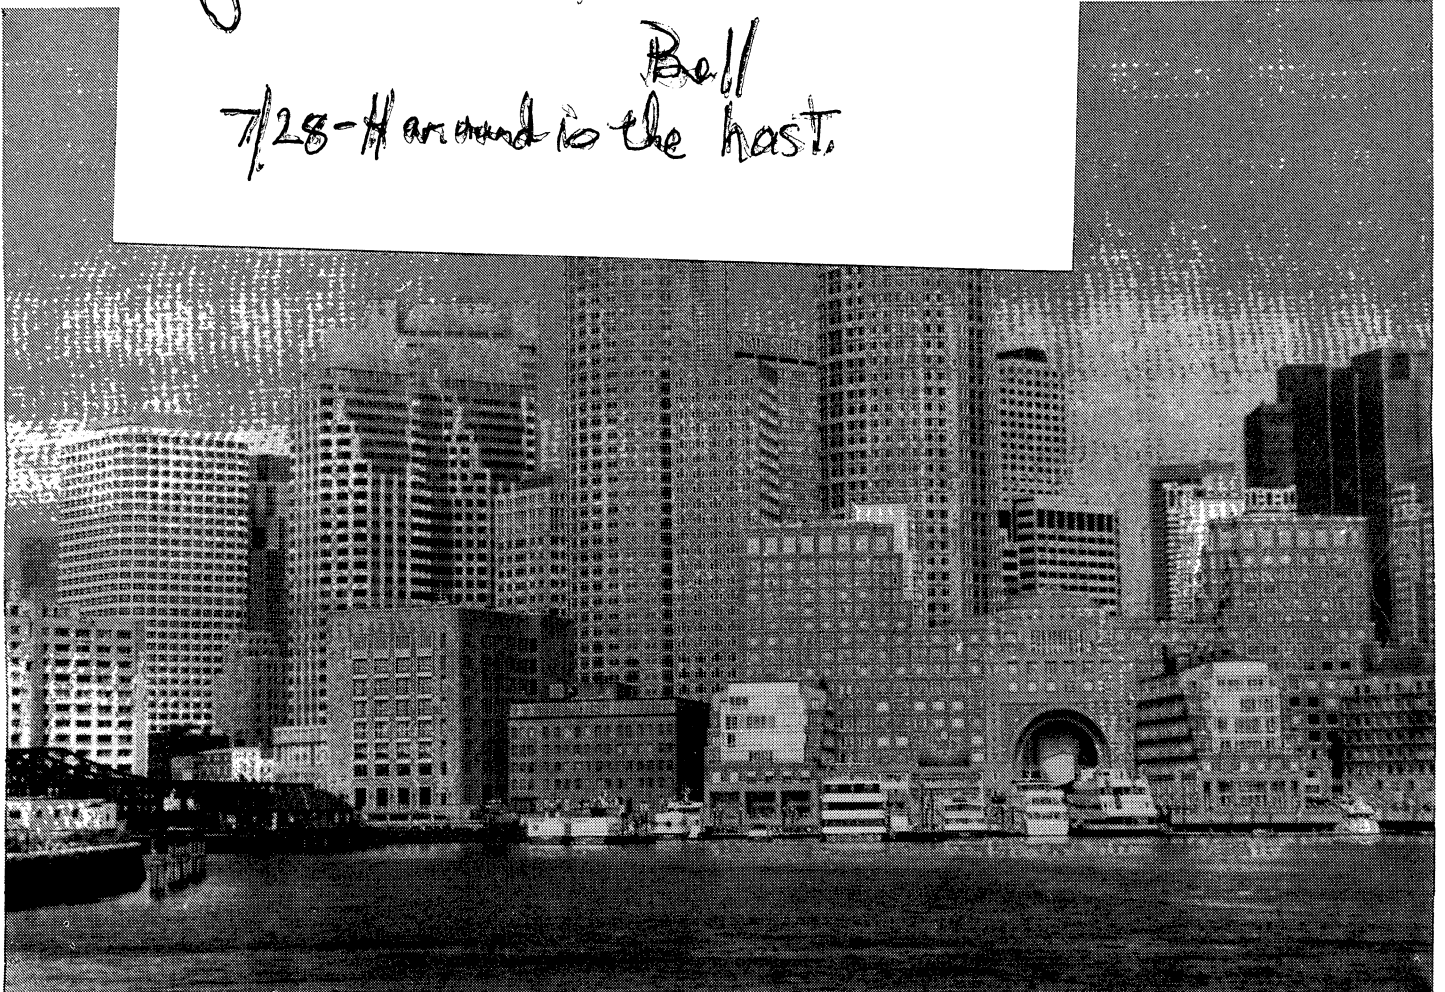 Bell
7/28-Harvard is the host.